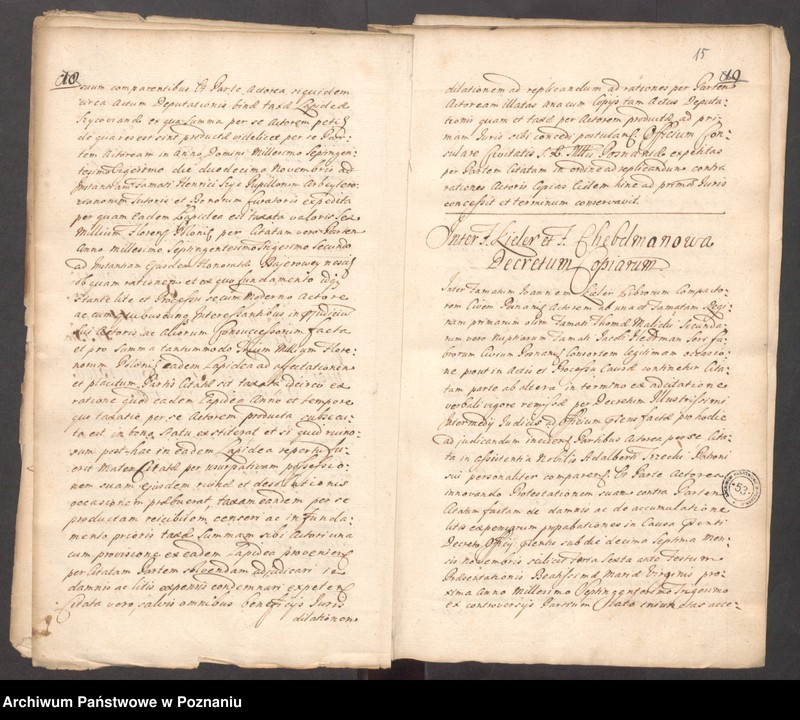 18
suum comparentibus Et Parte Actorea siquidem
circa Actum Deputationis binæ taxæ Lapideæ
ex qua Summa per se Actorem
de qua res est sint productæ videlicet per se Par-
tem Actoream in Anno Domini Millesimo Septingen-
tesimo Vigesimo die duodecimo Novembris ad
Instantiam Famati Henrici Pupillorum
Sutoris et Bonorum expedita
per quam eadem Lapidea est taxata valoris Sex
Millium Floren Polonic per Citatam vero Partem
Anno Millesimo Septingentesimo Trigesimo Secundo
ad Instantiam Ejusdem Honoratæ Bajerowey
ob quam rationem et ex quo fundamento
stante lite et Processu secum moderno Actore
ac cum quibusvis Interessantibus in
Actoris ac Aliorum Consuccessorum facta
et pro Summa tantummodo Trium Millium Flore-
norum Polonic eadem Lapidea ad affectationem
et placitum Partis Citatæ sit taxata Ideirco ex
ratione quod eadem Lapidea Anno et tempore
quo taxatio per se Actorem producta subsecu-
ta est in bono Statu exstiterat et si quid ruino-
sum post-hac in eadem Lapidea repertu fu-
erit Mater Citatæ per usurpativam possessio-
nem suam ejusdem ruinæ et desolationis
occasionem præbuerat, taxam eandem per se
productam recibilem censeri ac in funda-
mento prioris taxæ Summam sibi Actori una
cum provisione ex eadem Lapidea proveniens
per Citatam Partem solvendam adjudicari in
damnis ac litis expensis condemnari
Citata vero, salvis omnibus beneficijs Juris
dilationem
15
19
dilationem ad replicandum ad rationes per Partem
Actoream illatas una cum Copijs tam Actus Deputa-
tionis quam et taxæ per Actorem productæ ad pri-
mam Juris sibi concedi postulans Officium Con-
sulare Civitatis S. R. Mttis Posnaniæ expetitas
per Partem Citatam in ordine ad replicandum contra
rationes Actoris Copias Eidem hinc ad primam Juris
concessit et terminum conservavit.
Inter F. Lieder et F. Chebdmanowa
Decretum Copiarum
Inter Famatum Joannem Lieder Librorum Compacto-
rem Civem Posnanis Actorem ab una et Famatam Regi-
nam primarum olim Famati Thomæ Secunda-
rum vero Nuptiarum Famati Jacobi Hebdman
Civium Posnans Consortem legitimam occasio-
ne prout in Actis et Processu Causæ continetur Cita-
tam parte ab altera in termino ex dilatione
verbali vigore remissæ per Decretum Illustrissimi
Intermedij Judicis ad Officium præsens factæ pro hodie
ad judicandum incidens Partibus Actorea per se Cita-
ta in assistentia Nobilis Adalberti Patroni
sui personaliter comparens Et Parte Actorea
innovando Protestationem suam contra Partem
Citatam factam de damnis ac de accumulatione
litis expensarum in Causa præsenti
Decreto Officij præsentis sub die decima Septima men-
sis novembris scilicet feria Sexta ante Festum
Præsentationis Beatissimæ Mariæ Virginis pro-
xima Anno Millesimo Septingentesimo Trigesimo
ex controversijs Partium lato
53
Archiwum Państwowe w Poznaniu